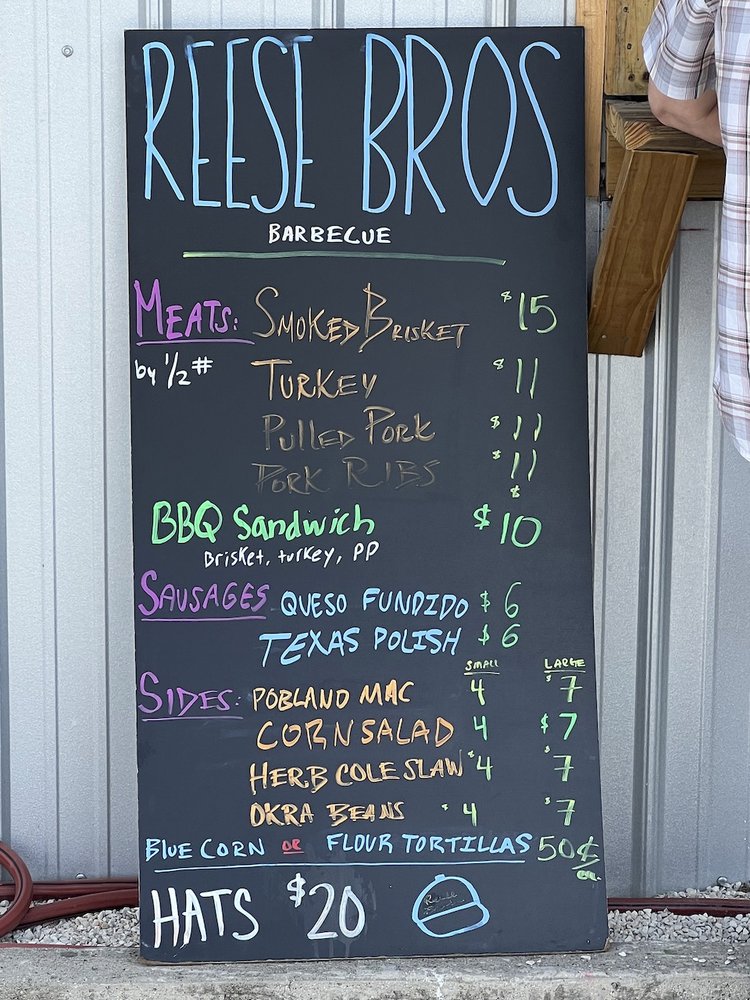 REESE BROS
BARBECUE
MEATS: SMOKED BRISKET $15
by 1/2# TURKEY $11
PULLED PORK $11
PORK RIBS $11
$
BBQ Sandwich $10
Brisket, turkey, PP
SAUSAGES QUESO FUNDIDO $6
TEXAS POLISH $6
SMALL LARGE
SIDES: POBLANO MAC 4 $7
CORN SALAD 4 $7
HERB COLESLAW $4 $7
OKRA BEANS $4 $7
BLUE CORN OR FLOUR TORTILLAS 50¢
ea.
HATS $20